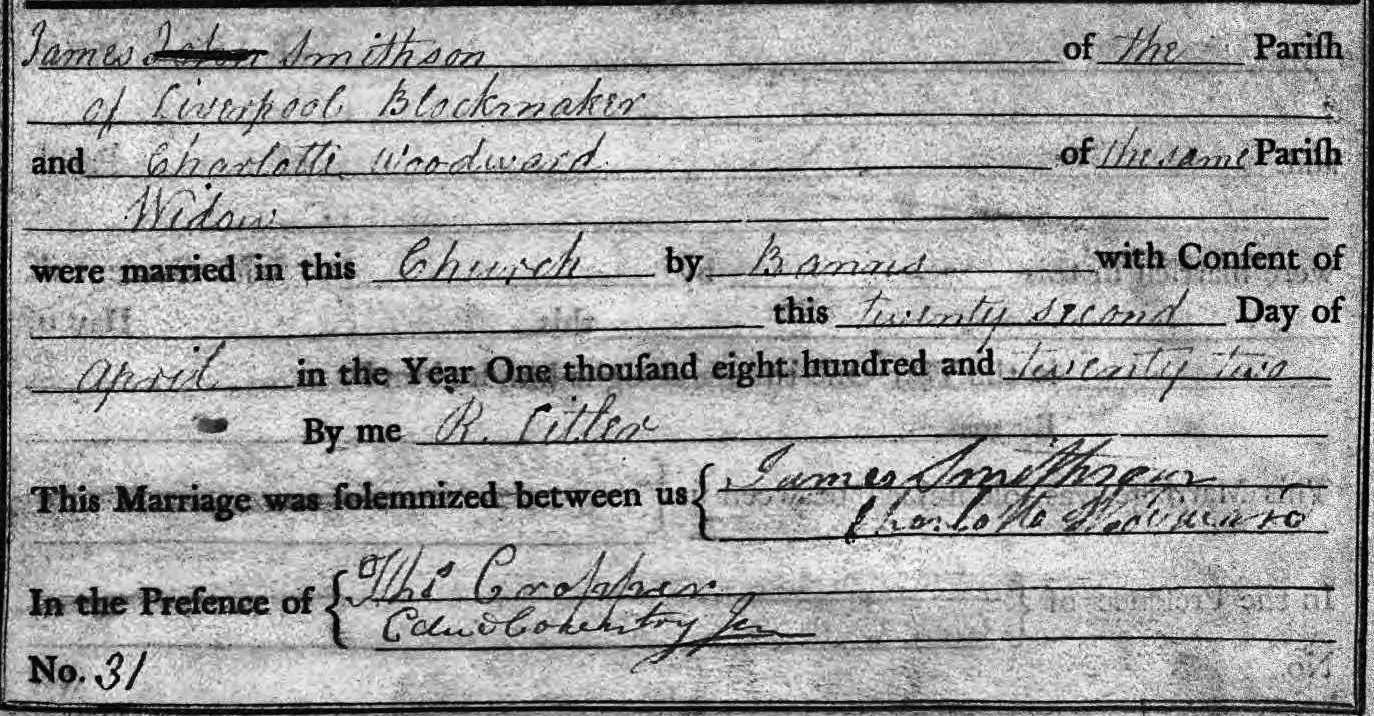 James Smithson of the Pariſh
of Liverpool Blockmaker
and Charlotte Woodward of the same Pariſh
Widow
were married in this Church by Banns with Conſent of
this twenty second Day of
April in the Year One thouſand eight hundred and twenty two
By me R.
This Marriage was ſolemnized between us { James Smithson
Charlotte Woodward
In the Preſence of { Thos Cropper
Edwd Coventry Jun
No. 31